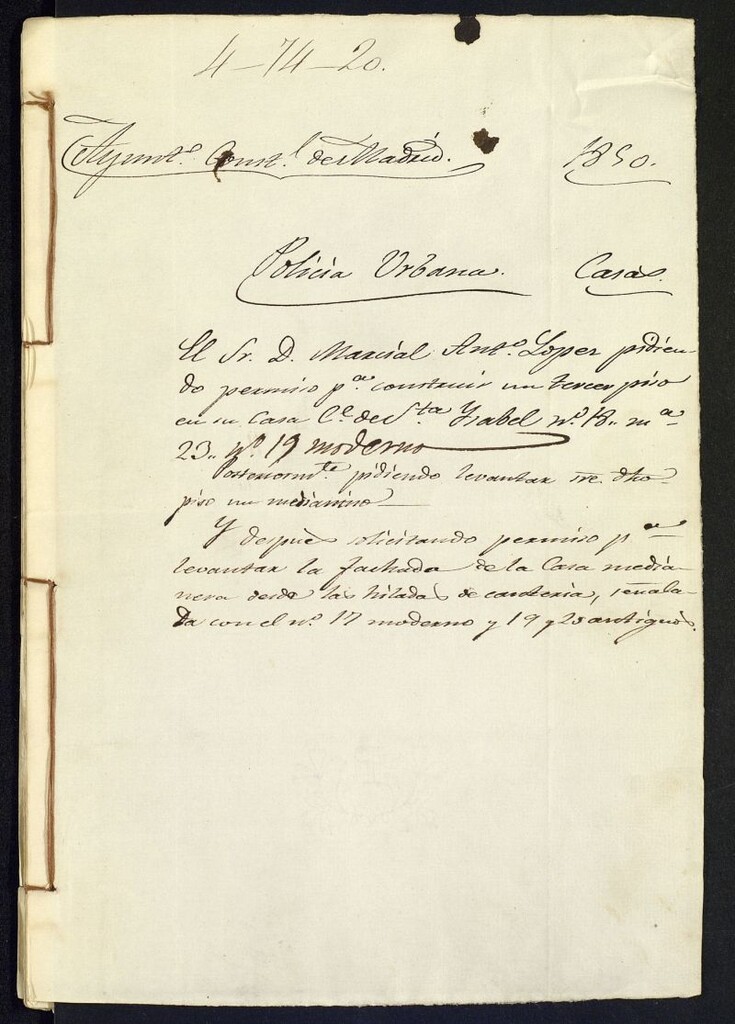 4-74-20.
Ayunt.º Const.l de Madrid. 1850.
Policia Urbana. Casas.
El Sr. D. Marcial Ant.º Lopez pidien-
do permiso p.ª construir un tercer piso
en su Casa C.e de S.ta Ysabel n.º 18 m.ª
23 n.º 19 moderno
Posteriorm.te pidiendo levantar sre. dho
piso un
Y despues solicitando permiso p.ª
levantar la fachada de la Casa media-
nera desde las hiladas de canteria, señala-
da con el n.º 17 moderno y 19 y 20 antiguos.